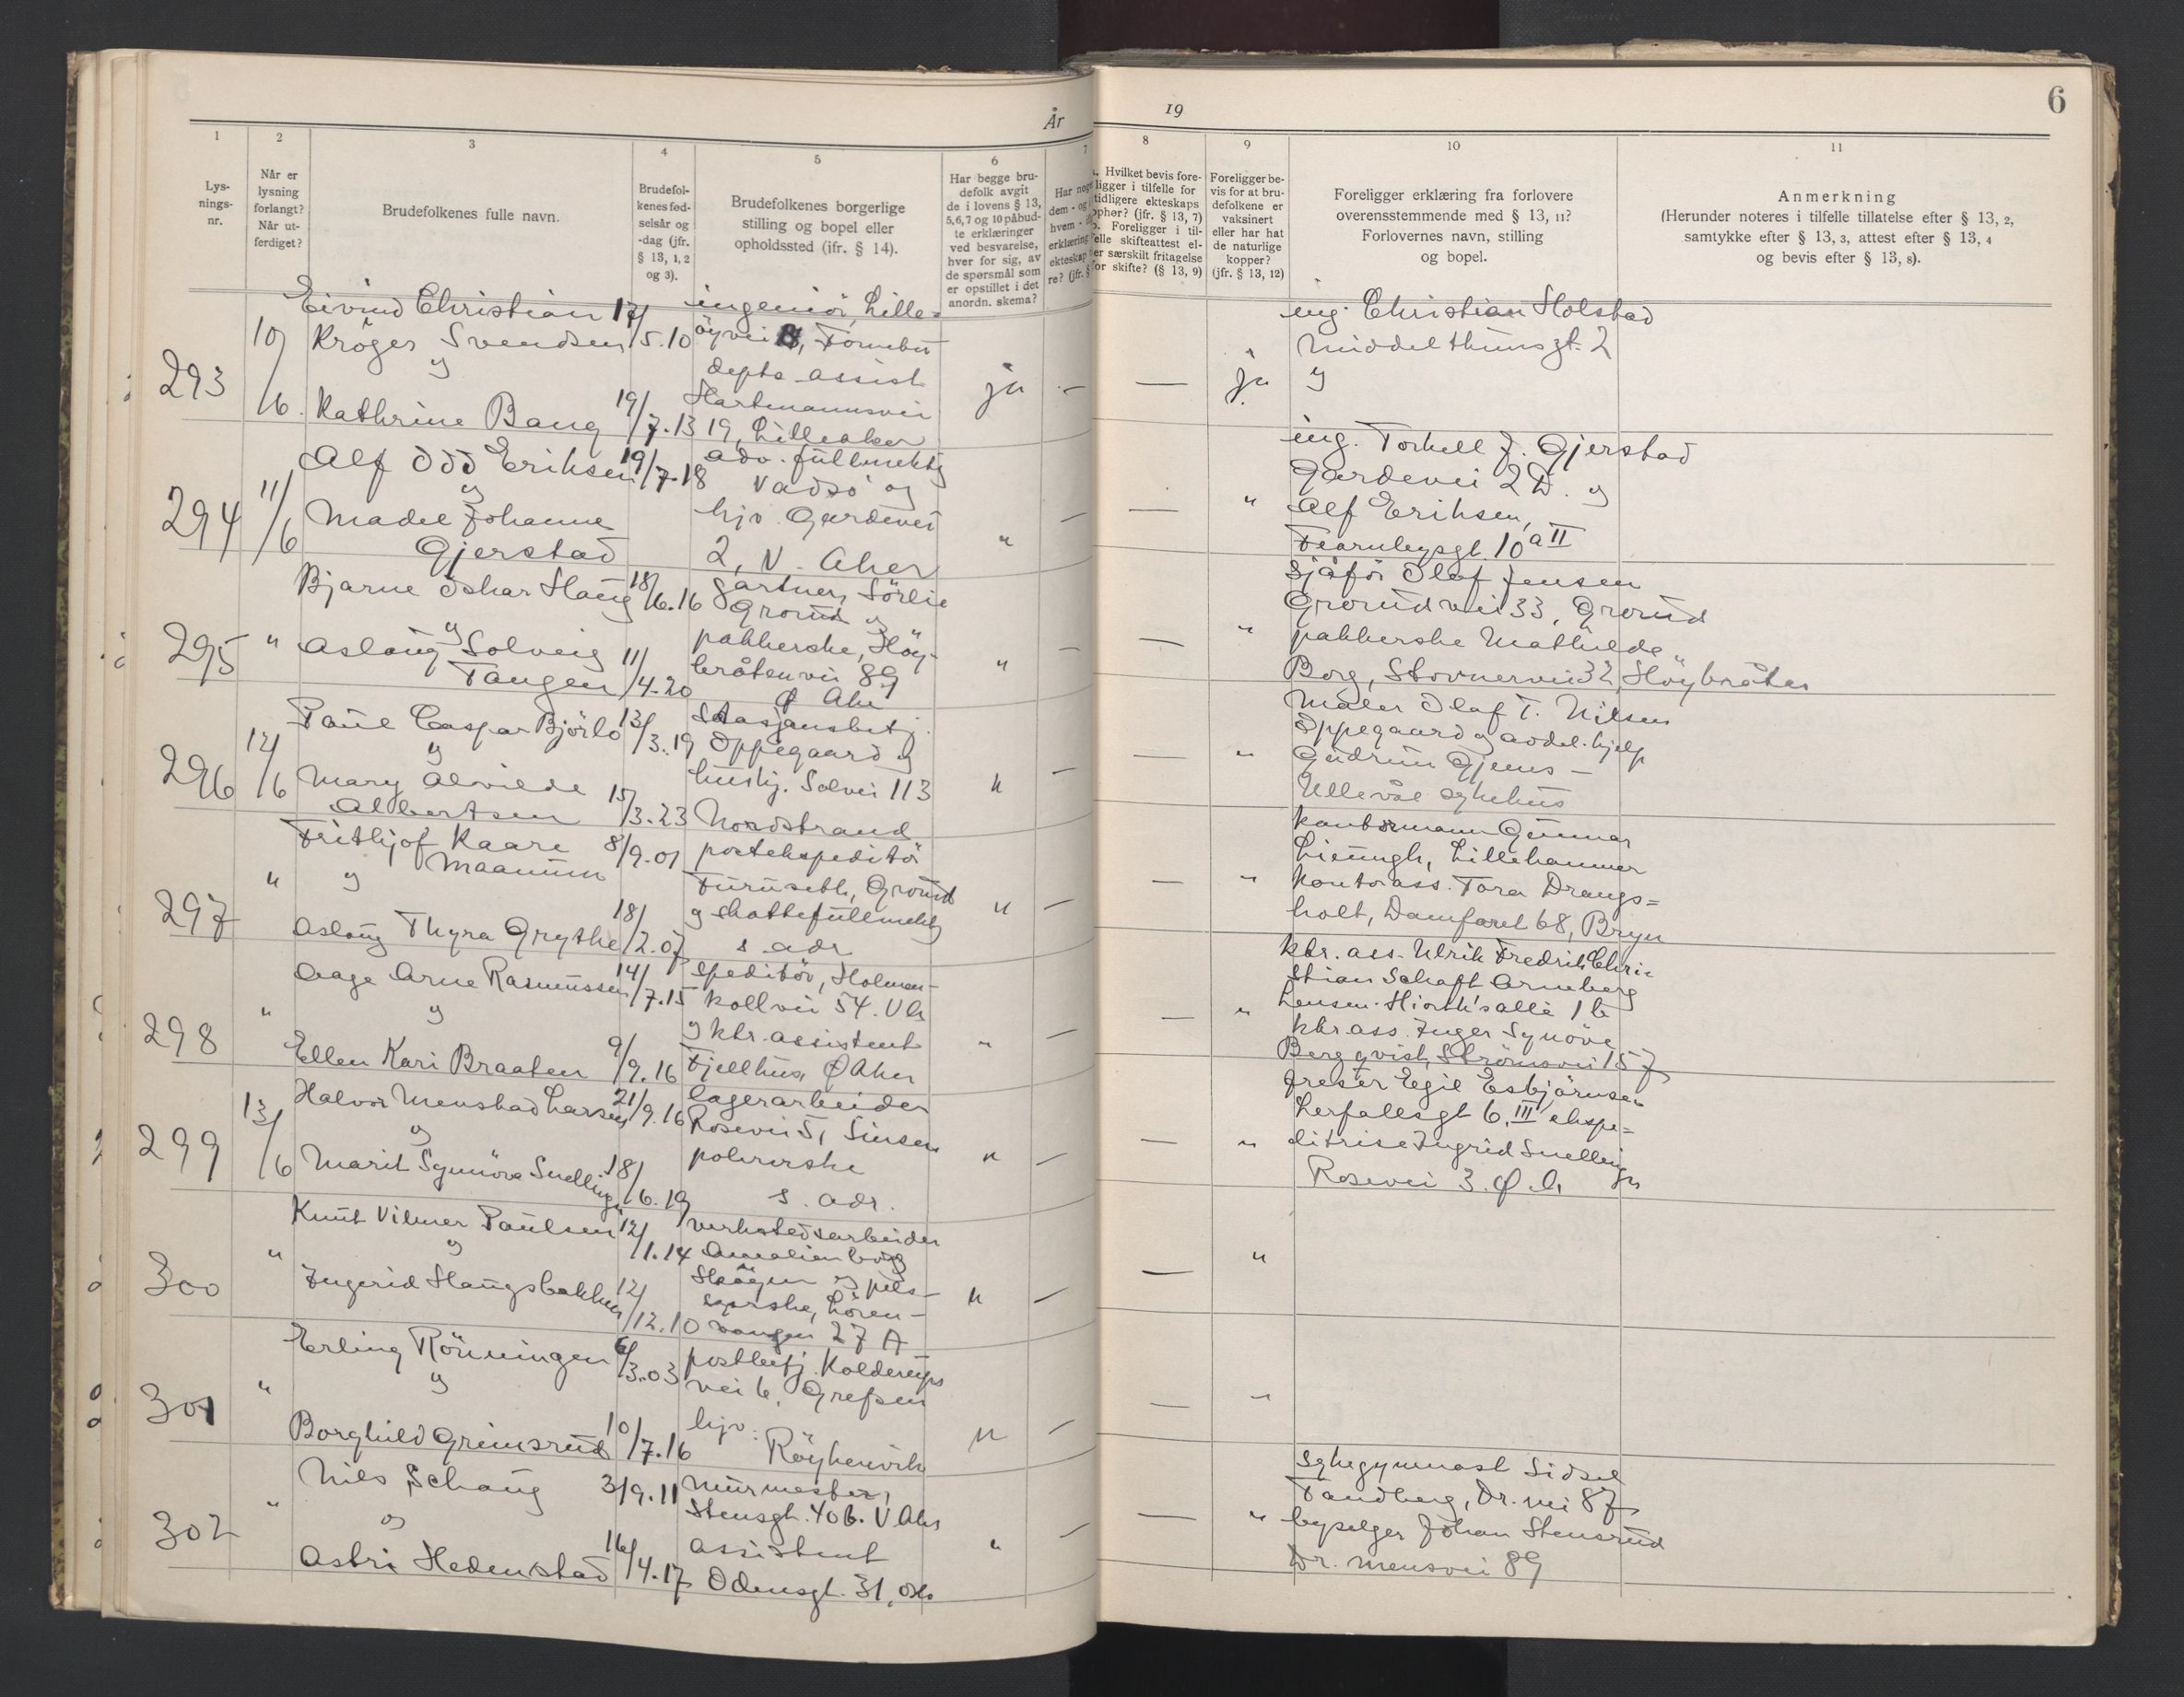 År 19
6
1
Lys-
nings-
nr.
2
Når er
lysning
forlangt?
Når ut-
ferdiget?
3
Brudefolkenes fulle navn.
4
Brudefol-
kenes fød-
selsår og
-dag (jfr.
§ 13, 1, 2
og 3).
5
Brudefolkenes borgerlige
stilling og bopel eller
opholdssted (ifr. § 14).
6
Har begge bru-
defolk avgit
de i lovens § 13,
5, 6, 7 og 10 påbud-
te erklæringer
ved besvarelse,
hver for sig, av
de spørsmål som
er opstillet i det
anordn. skema?
7
Har nogen
dem - og
hvem -
erklæring
ekteskap
re? (jfr. §
8
Hvilket bevis fore-
ligger i tilfelle for
tidligere ekteskaps
ophør? (jfr. § 13, 7)
Foreligger i til-
felle skifteattest el-
ler særskilt fritagelse
for skifte? (§ 13, 9)
9
Foreligger be-
vis for at bru-
defolkene er
vaksinert
eller har hat
de naturlige
kopper?
(jfr. § 13, 12)
10
Foreligger erklæring fra forlovere
overensstemmende med § 13, 11?
Forlovernes navn, stilling
og bopel.
11
Anmerkning
(Herunder noteres i tilfelle tillatelse efter § 13, 2,
samtykke efter § 13, 3, attest efter § 13, 4
og bevis efter § 13, 8).
293
10/6
Eivind Christian
Kröger Svendsen
og
Kathrine Bang
17/5.10
19/7.13
ingeniör, Lille-
öyvei, Fornebu
depts assist
Hartmannsvei
19, Lilleaker
ja
—
—
ja
ing. Christian Holstad
Middelthunsgt. 2
og
294
11/6
Alf Odd Eriksen
og
Madel Johanne
Gjerstad
19/7.18
adv. fullmektig
Vadsö og
hjv. Gardevei
2, V. Aker
"
—
—
"
ing. Torkell J. Gjerstad
Gardevei 2 D. og
Alf Eriksen,
Fearnleysgt. 10 a II
295
"
Bjarne Oskar Haug
og
Aslaug Solveig
Tangen
18/6.16
11/4.20
gartner, Sörlie
Grorud og
pakkerske, Höy-
bråtenvei 89
Ø Aker
"
—
—
"
sjåför Olaf Jensen
Grorudvei 33, Grorud
pakkerske Mathilde
Borg, Stovnervei 32, Höybråten
296
12/6
Paul Caspar Björlo
og
Mary Alvilde
Albertsen
13/3.19
15/3.23
Stasjonsbetj.
Oppegaard og
hushj. Solvei 113
Nordstrand
"
—
—
"
Maler Olaf T. Nilsen
Oppegaard og avdel. hjelp
Gudrun Gjems -
Ullevål sykehus
297
"
Frithjof Kaare
Maanum
og
Aslaug Thyra Grythe
8/9.01
18/2.07
postekspeditör
Furuseth, Grorud
og skattefullmektig
s. adr
"
—
—
"
kontormann Gunnar
Lillehammer
kontorass. Tora Drangs-
holt, Damfaret 68, Bryn
298
"
Aage Arne Rasmussen
og
Ellen Kari Braaten
14/7.15
9/9.16
speditör, Holmen-
kollvei 54. V Ak
og ktr. assistent
Fjellhus, Ø Aker
"
—
—
"
ktr. ass. Ulrik Fredrik Chri-
stian Schaft Arneberg
Lensen. Hiorth's allé 1 b
ktr. ass. Inger Synöve
Bergqvist, Strömsvei 157
299
13/6
Halvor Menstad Larsen
og
Marit Synnöve Snellingen
21/9.16
18/6.19
lagerarbeider
Rosevei 5, Sinsen
polererske
s. adr.
"
—
—
"
freser Egil Esbjörnsen
Herfallsgt 6, III ekspe-
ditrise Ingrid Snellingen
Rosevei 3. Ø. A
300
"
Knut Vilmer Paulsen
og
Ingerid Haugsbakken
12/1.14
12/12.10
verkstedsarbeider
Amalienborg
Skøyen og pels-
syerske, Lören-
vangen 27 A
"
—
—
"
301
"
Erling Rönningen
og
Borghild Grimsrud
6/3.03
10/7.16
postbetj. Kolderups
vei 6, Grefsen
hjv.
Röykenvik
"
—
—
"
302
"
Nils Schaug
og
Astri Hedenstad
3/9.11
16/4.17
Murmester,
Stensgt. 40 b. V Aker
assistent
Odensgt. 31, Oslo
"
—
—
"
sykegymnast Sidsel
Tandberg, Dr. vei 87
byselger Johan Stensrud
Dr. mensvei 89